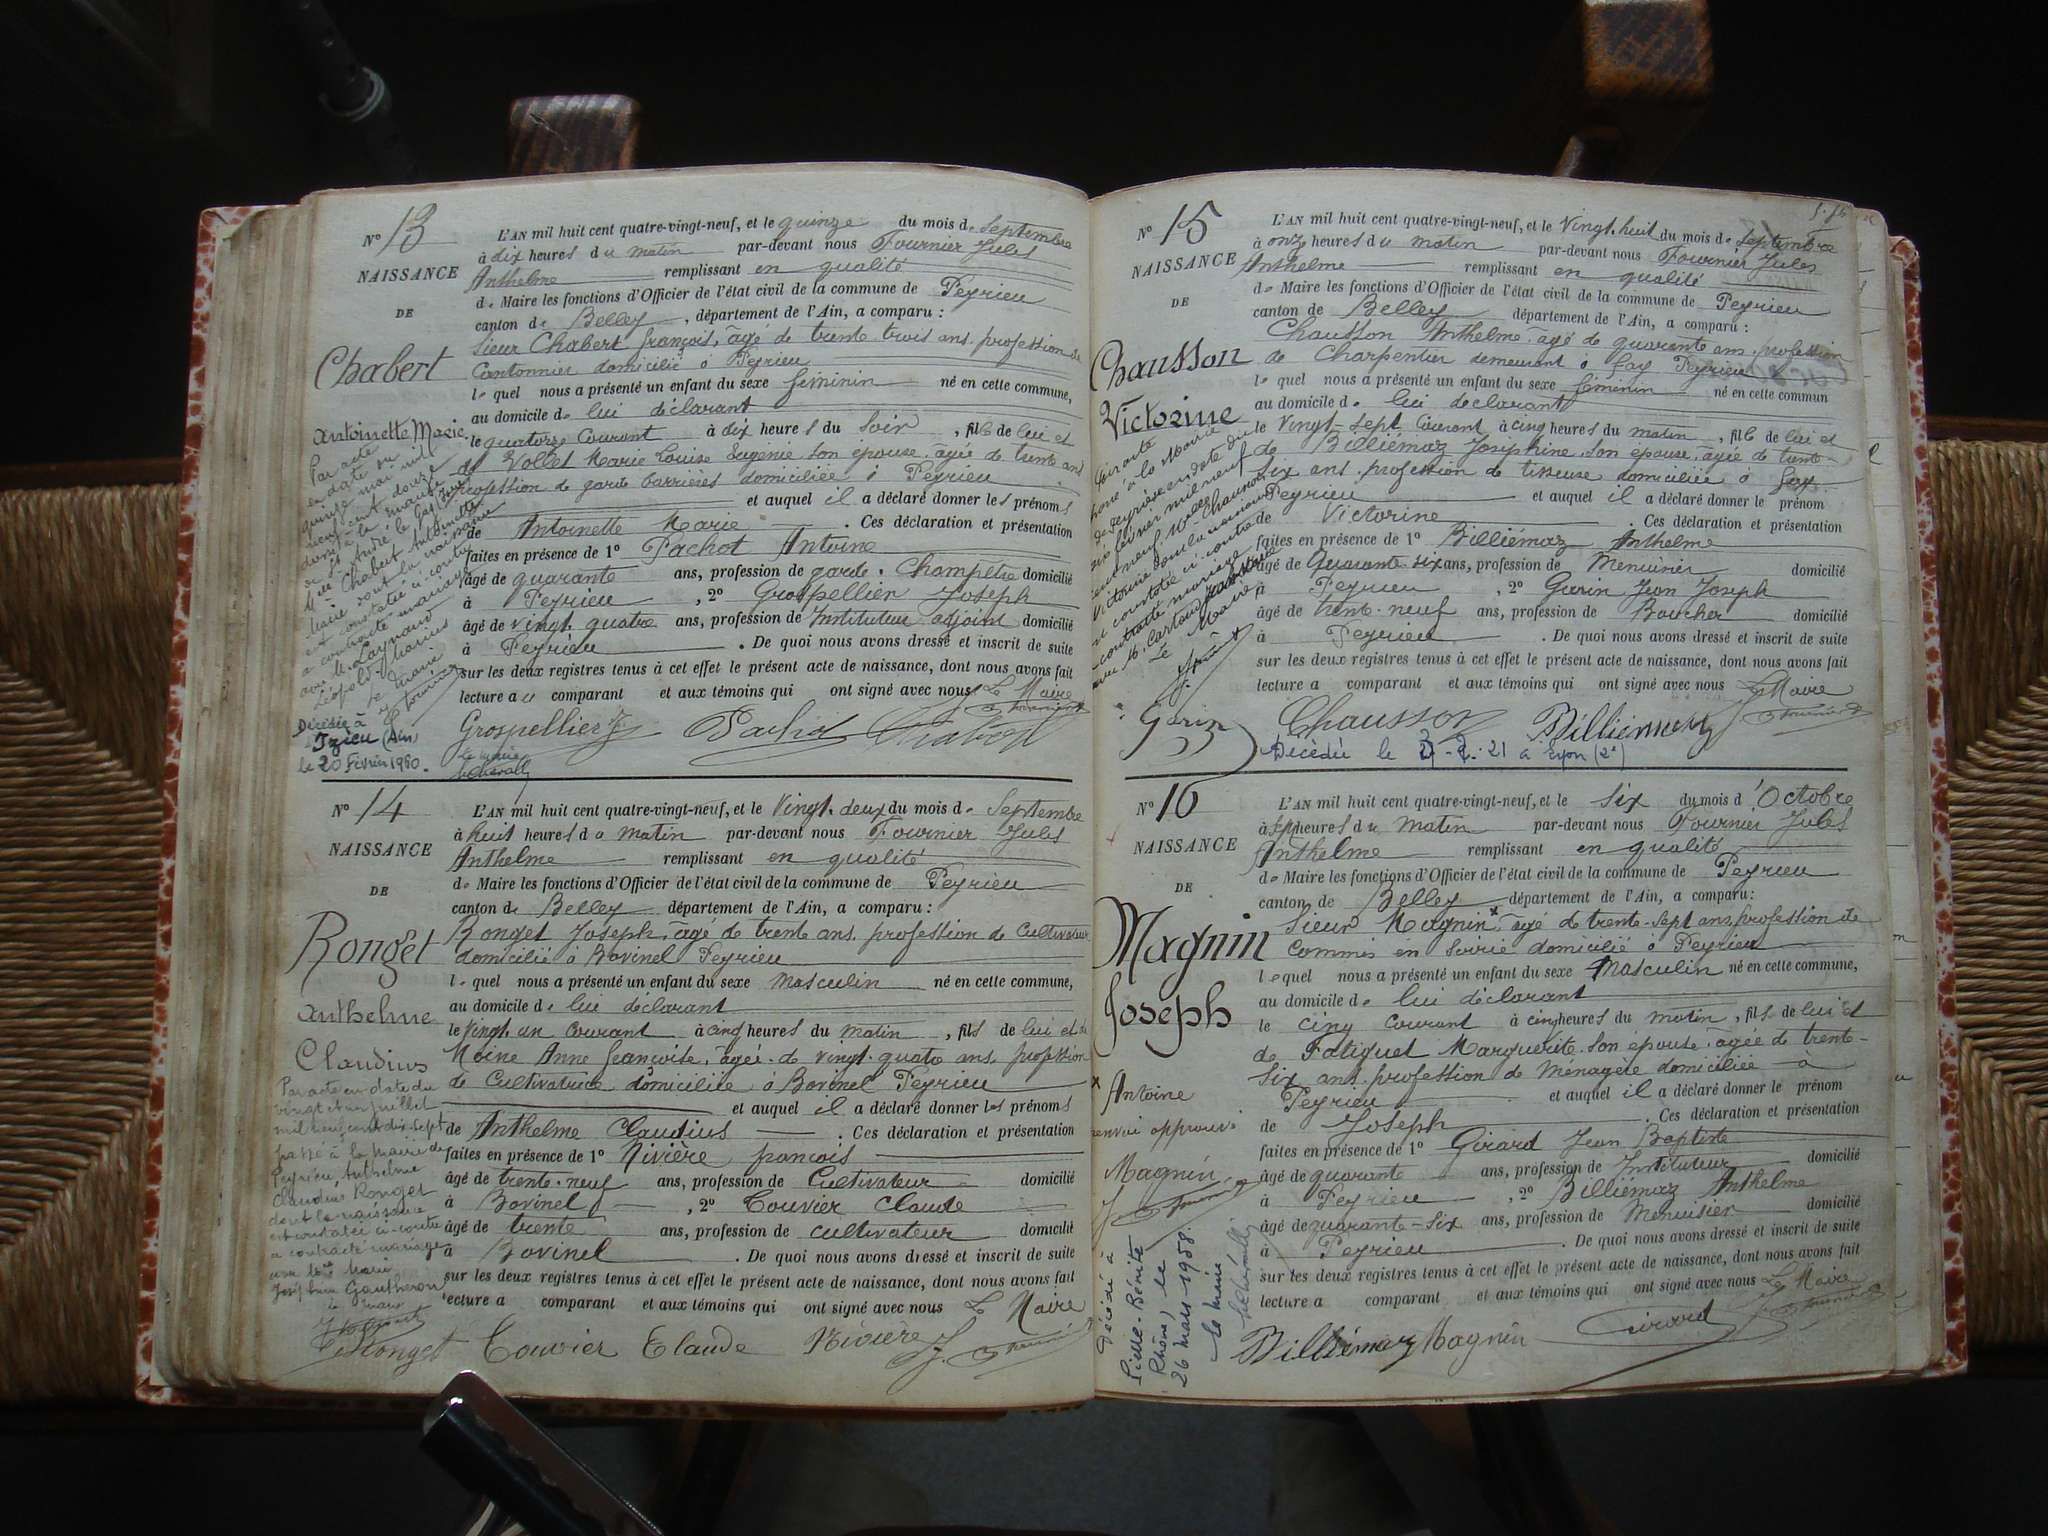 N° 13
NAISSANCE
DE
Chabert
Antoinette Marie
L'AN mil huit cent quatre-vingt-neuf, et le quinze du mois de Septembre
à dix heures du matin par-devant nous Fournier Jules
Anthelme remplissant en qualité
de Maire les fonctions d'Officier de l'état civil de la commune de Peyrieu
canton de Belley, département de l'Ain, a comparu :
Sieur Chabert françois, âgé de trente trois ans, profession de
Cantonnier domicilié à Peyrieu
lequel nous a présenté un enfant du sexe féminin né en cette commune,
au domicile de lui déclarant
le quatorze Courant à dix heures du soir, fille de lui et
de Vollet Marie Louise Eugénie son épouse, agée de trente ans
profession de garde barrières domiciliée à Peyrieu
et auquel il a déclaré donner les prénoms
de Antoinette Marie. Ces déclaration et présentation
faites en présence de 1° Pachot Antoine
âgé de quarante ans, profession de garde-Champêtre domicilié
à Peyrieu, 2° Grospellier Joseph
âgé de vingt quatre ans, profession de Instituteur adjoint domicilié
à Peyrieu. De quoi nous avons dressé et inscrit de suite
sur les deux registres tenus à cet effet le présent acte de naissance, dont nous avons fait
lecture au comparant et aux témoins qui ont signé avec nous Le Maire
Par acte
en date du
quinze mai mil
neuf cent douze
dressé à la mairie
Mlle Chabert Antoinette
Marie dont la naissance
est constatée ci-contre
a contracté mariage
avec M.
Léopold Marius
Le maire
Fournier
Décédée à
Izieu (Ain)
le 20 Février 1980.
Grospellier J. Pachot Chabert
Le maire
N° 14
NAISSANCE
DE
Ronget
Anthelme
Claudius
L'AN mil huit cent quatre-vingt-neuf, et le Vingt-deux du mois de Septembre
à huit heures du matin par-devant nous Fournier Jules
Anthelme remplissant en qualité
de Maire les fonctions d'Officier de l'état civil de la commune de Peyrieu
canton de Belley département de l'Ain, a comparu :
Ronget Joseph, âgé de trente ans, profession de Cultivateur
domicilié à Bovinel Peyrieu
lequel nous a présenté un enfant du sexe Masculin né en cette commune,
au domicile de lui déclarant
le Vingt-un courant à cinq heures du matin, fils de lui et de
Moine Anne françoise, agée de vingt-quatre ans, profession
de Cultivatrice domiciliée à Bovinel Peyrieu
et auquel il a déclaré donner les prénoms
de Anthelme Claudius. Ces déclaration et présentation
faites en présence de 1° Rivière françois
âgé de trente-neuf ans, profession de Cultivateur domicilié
à Bovinel, 2° Couvier Claude
âgé de trente ans, profession de cultivateur domicilié
à Bovinel. De quoi nous avons dressé et inscrit de suite
sur les deux registres tenus à cet effet le présent acte de naissance, dont nous avons fait
lecture a comparant et aux témoins qui ont signé avec nous Le Maire
Par acte en date du
vingt et un juillet
mil neuf cent dix-sept
passé à la Mairie de
Peyrieu Anthelme
Claudius Ronget
dont la naissance
est constatée ci-contre
a contracté mariage
avec Melle Marie
Joséphine Gautheron
le maire
Ronget Couvier Claude Rivière
N° 15
NAISSANCE
DE
Chausson
Victorine
L'AN mil huit cent quatre-vingt-neuf, et le Vingt-huit du mois de Septembre
à onz heures du matin par-devant nous Fournier Jules
Anthelme remplissant en qualité
de Maire les fonctions d'Officier de l'état civil de la commune de Peyrieu
canton de Belley département de l'Ain, a comparu :
Chausson Anthelme âgé de quarante ans, profession
de Charpentier demeurant à fay Peyrieu
lequel nous a présenté un enfant du sexe féminin né en cette commun
au domicile de lui déclarant
le Vingt-sept Courant à cinq heures du matin, fille de lui et
de Billiémaz Joséphine, son épouse, agée de trente-
six ans, profession de tisseuse domiciliée à fay
Peyrieu et auquel il a déclaré donner le prénom
de Victorine. Ces déclaration et présentation
faites en présence de 1° Billiémaz Anthelme
âgé de Quarante six ans, profession de Menuisier domicilié
à Peyrieu, 2° Gorin Jean Joseph
âgé de trente-neuf ans, profession de Boucher domicilié
à Peyrieu. De quoi nous avons dressé et inscrit de suite
sur les deux registres tenus à cet effet le présent acte de naissance, dont nous avons fait
lecture a comparant et aux témoins qui ont signé avec nous Le Maire
à la Mairie
de Peyrieu en date du
six février mil neuf
cent neuf Mlle Chausson
Victorine dont la naissance
est constatée ci-contre
a contracté mariage
avec M.
Le Maire
Gorin Chausson Billiémaz
Décédée le 3-2-21 à Lyon (2e)
N° 16
NAISSANCE
DE
Magnin
Joseph
L'AN mil huit cent quatre-vingt-neuf, et le six du mois d'Octobre
à sept heures du Matin par-devant nous Fournier Jules
Anthelme remplissant en qualité
de Maire les fonctions d'Officier de l'état civil de la commune de Peyrieu
canton de Belley département de l'Ain, a comparu :
Sieur Magnin x âgé de trente-sept ans, profession de
Commis en soirie domicilié à Peyrieu
lequel nous a présenté un enfant du sexe Masculin né en cette commune,
au domicile de lui déclarant
le cinq courant à cinq heures du matin, fils de lui et
de Fatiguet Marguerite son épouse, agée de trente-
six ans, profession de Ménagère domiciliée à
Peyrieu et auquel il a déclaré donner le prénom
de Joseph. Ces déclaration et présentation
faites en présence de 1° Girard Jean Baptiste
âgé de quarante ans, profession de Instituteur domicilié
à Peyrieu, 2° Billiémaz Anthelme
âgé de quarante-six ans, profession de Menuisier domicilié
à Peyrieu. De quoi nous avons dressé et inscrit de suite
sur les deux registres tenus à cet effet le présent acte de naissance, dont nous avons fait
lecture a comparant et aux témoins qui ont signé avec nous Le Maire
x Antoine
renvoi approuvé
Magnin
Décédé à
Pierre-Bénite
Rhône, le
26 mars 1958
Le maire
Billiémaz Magnin Girard